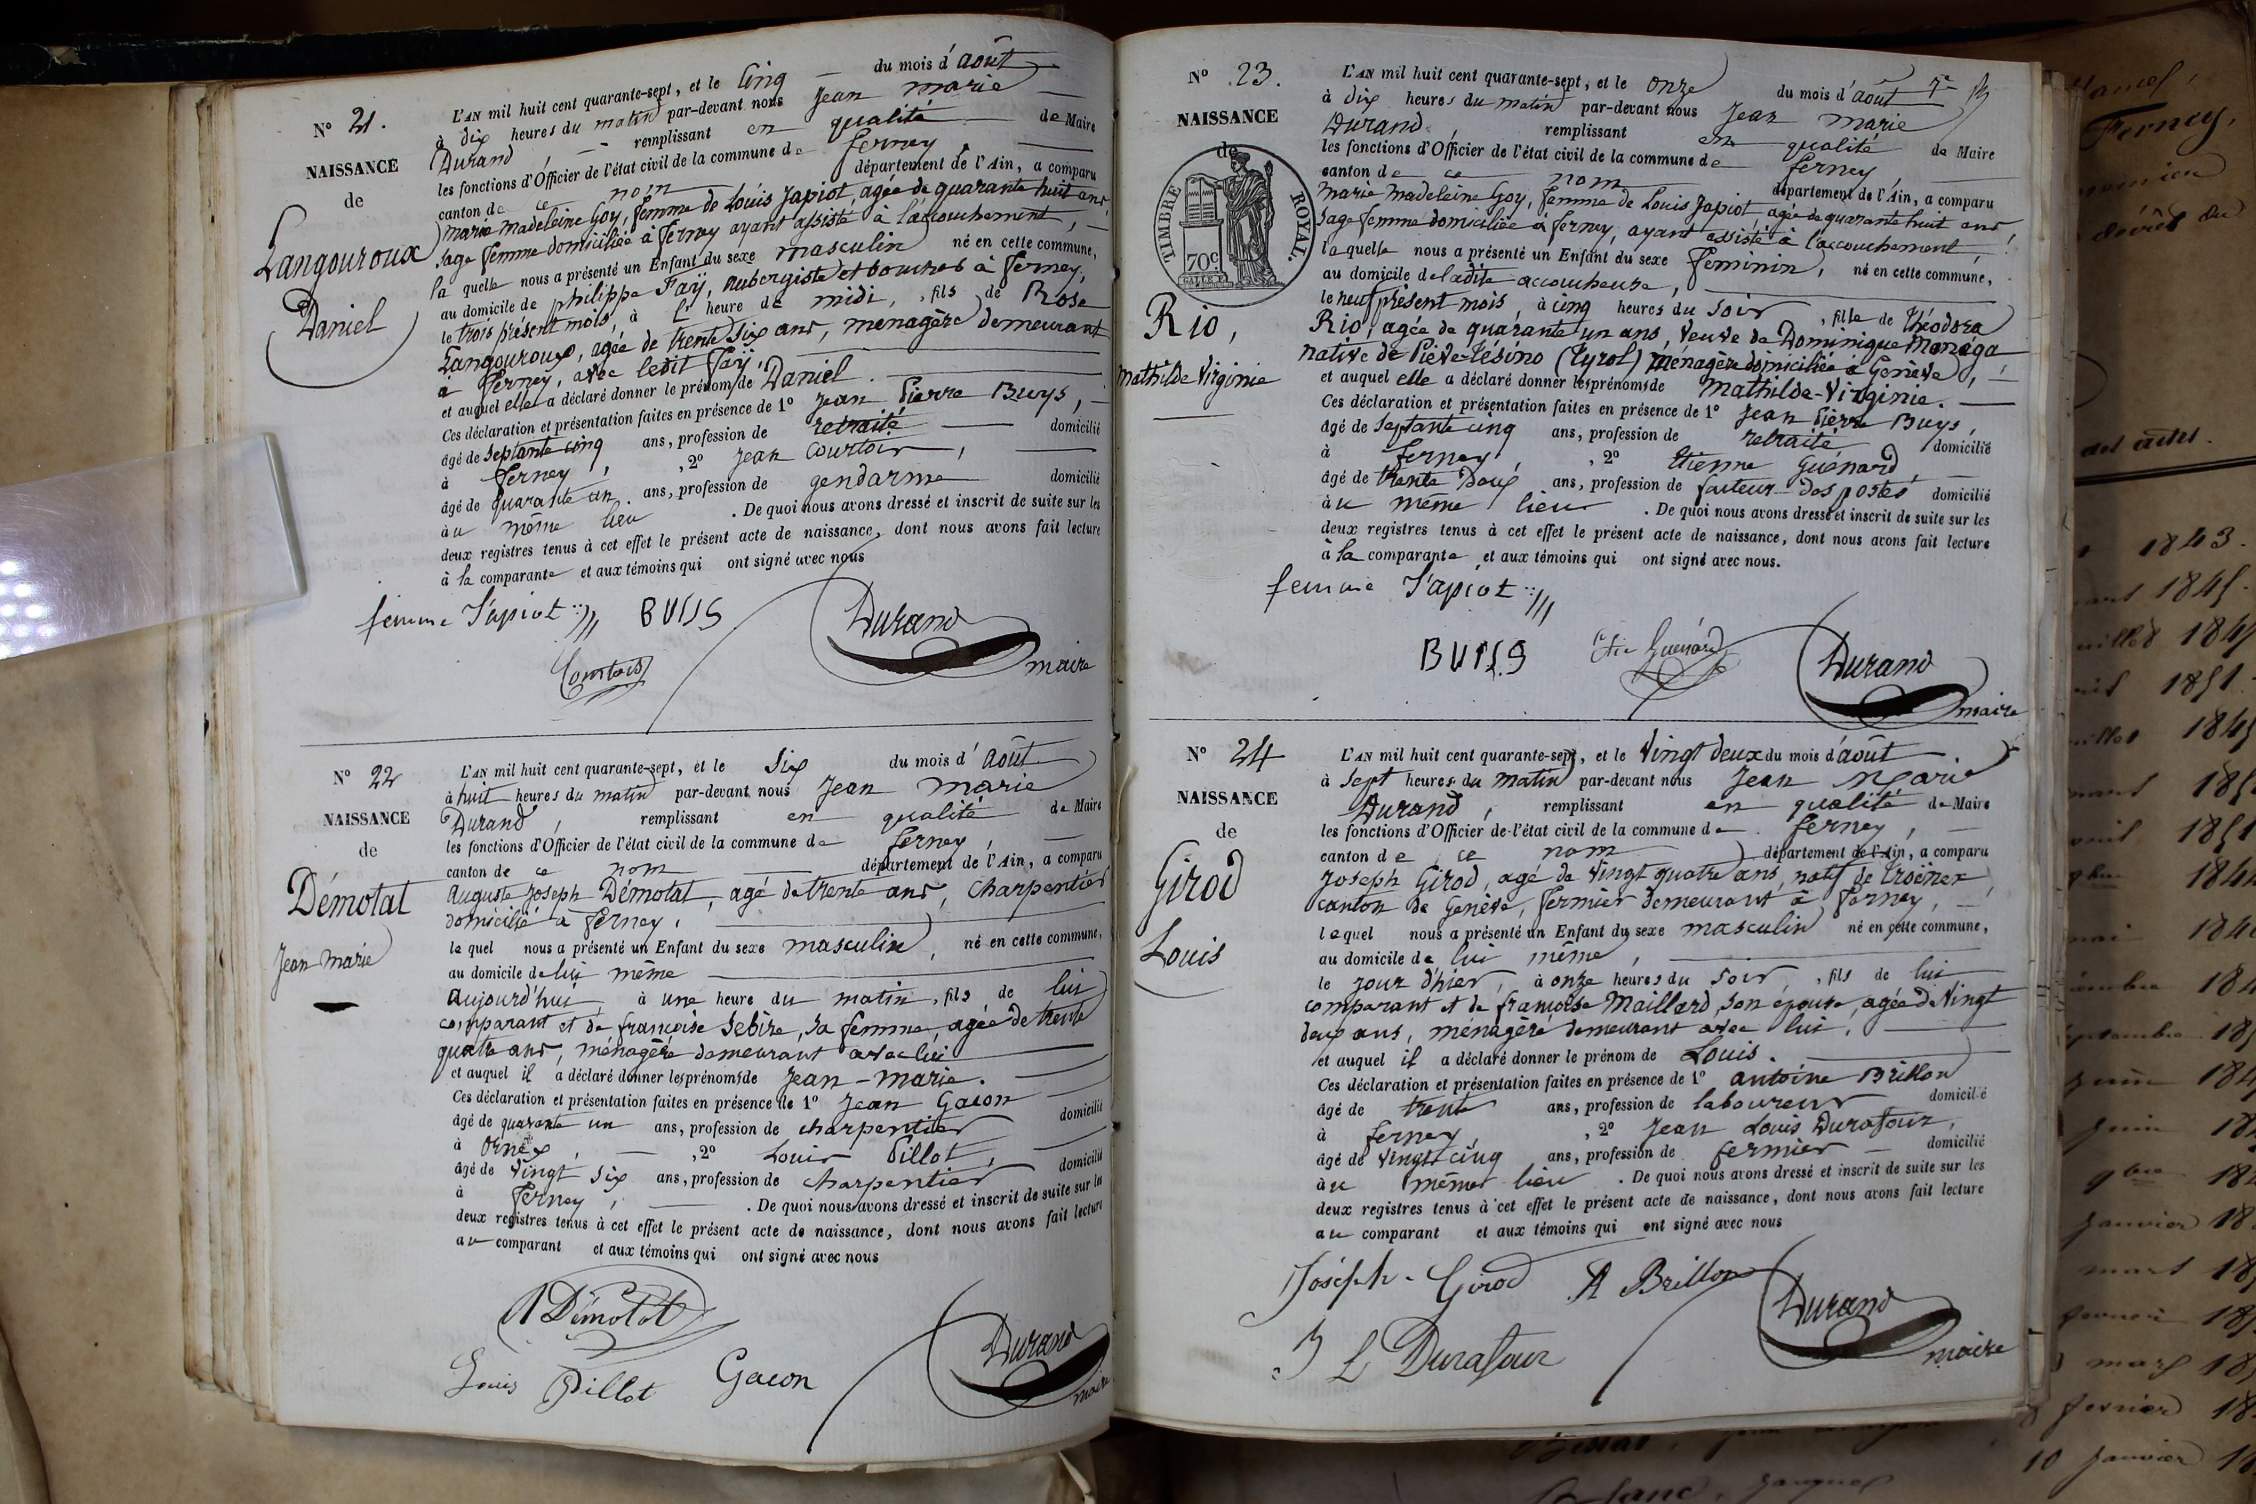 N° 21.
NAISSANCE
de
Langouroux
Daniel
L'AN mil huit cent quarante-sept, et le Cinq du mois d'août
à dix heures du matin par-devant nous Jean marie
Durand, remplissant en qualité de Maire
les fonctions d'Officier de l'état civil de la commune de ferney,
canton de ce nom département de l'Ain, a comparu
marie madeleine Goy, femme de Louis Japiot, agée de quarante huit ans,
sage femme domiciliée à ferney ayant assisté à l'accouchement,
la quelle nous a présenté un Enfant du sexe masculin né en cette commune,
au domicile de philippe Faÿ, aubergiste et boucher à ferney,
le trois présent mois, à l' heure de midi, fils de Rose
Langouroux, agée de trente six ans, menagère demeurant
à ferney, avec ledit Faÿ,
et auquel elle a déclaré donner le prénom de Daniel.
Ces déclaration et présentation faites en présence de 1° Jean Pierre Buys,
âgé de septante cinq ans, profession de retraité domicilié
à ferney, , 2° Jean Courtois,
âgé de quarante un ans, profession de gendarme domicilié
au même lieu . De quoi nous avons dressé et inscrit de suite sur les
deux registres tenus à cet effet le présent acte de naissance, dont nous avons fait lecture
à la comparante et aux témoins qui ont signé avec nous
femme Japiot BUYS Durand
Courtois maire
N° 22
NAISSANCE
de
Démotat
Jean marie
L'AN mil huit cent quarante-sept, et le Six du mois d'août
à huit heures du matin par-devant nous Jean marie
Durand, remplissant en qualité de Maire
les fonctions d'Officier de l'état civil de la commune de ferney,
canton de ce nom département de l'Ain, a comparu
Auguste Joseph Démotat, agé de trente ans, Charpentier
domicilié à ferney,
le quel nous a présenté un Enfant du sexe masculin, né en cette commune,
au domicile de lui même
aujourd'hui à une heure du matin, fils de lui
comparant et de françoise Sebire, sa femme, agée de trente
quatre ans, ménagère demeurant avec lui
et auquel il a déclaré donner les prénoms de Jean-marie.
Ces déclaration et présentation faites en présence de 1° Jean Gacon
âgé de quarante un ans, profession de charpentier domicilié
à Ornex, , 2° Louis Pillot,
âgé de Vingt six ans, profession de charpentier domicilié
à ferney, . De quoi nous avons dressé et inscrit de suite sur les
deux registres tenus à cet effet le présent acte de naissance, dont nous avons fait lecture
au comparant et aux témoins qui ont signé avec nous
A Démotat
Louis Pillot Gacon Durand
maire
N° 23.
NAISSANCE
de
TIMBRE ROYAL.
70c.
Rio,
Mathilde Virginie
L'AN mil huit cent quarante-sept, et le onze du mois d'août
à dix heures du matin par-devant nous Jean marie
Durand, remplissant en qualité de Maire
les fonctions d'Officier de l'état civil de la commune de ferney
canton de ce nom département de l'Ain, a comparu
marie Madeleine Goy, femme de Louis Japiot, agée de quarante huit ans,
sage femme domiciliée à ferney, ayant assisté à l'accouchement,
la quelle nous a présenté un Enfant du sexe feminin, né en cette commune,
au domicile de ladite accoucheuse,
le neuf présent mois, à cinq heures du soir, fille de Théodora
Rio, agée de quarante un ans, veuve de Dominique Menéga
native de Piève-Tésino (Tyrol) ménagère domiciliée à Genève,
et auquel elle a déclaré donner les prénoms de Mathilde-Virginie.
Ces déclaration et présentation faites en présence de 1° Jean Pierre Buys,
âgé de septante cinq ans, profession de retraité domicilié
à ferney , 2° Etienne Guénard
âgé de trente Deux ans, profession de facteur des postes domicilié
au même lieu . De quoi nous avons dressé et inscrit de suite sur les
deux registres tenus à cet effet le présent acte de naissance, dont nous avons fait lecture
à la comparante et aux témoins qui ont signé avec nous.
femme Japiot
BUYS Etie Guénard Durand
maire
N° 24
NAISSANCE
de
Girod
Louis
L'AN mil huit cent quarante-sept, et le Vingt deux du mois d'août
à sept heures du matin par-devant nous Jean Marie
Durand, remplissant en qualité de Maire
les fonctions d'Officier de l'état civil de la commune de ferney,
canton de ce nom département de l'Ain, a comparu
Joseph Girod, agé de Vingt quatre ans, natif de Troënex
canton de Genève, fermier demeurant à Ferney,
lequel nous a présenté un Enfant du sexe masculin né en cette commune,
au domicile de lui même,
le jour d'hier, à onze heures du soir, fils de lui
comparant et de françoise Maillard, son épouse, agée de Vingt
deux ans, ménagère demeurant avec lui,
et auquel il a déclaré donner le prénom de Louis.
Ces déclaration et présentation faites en présence de 1° antoine Brillon
âgé de trente ans, profession de laboureur domicilié
à ferney , 2° Jean Louis Durafour,
âgé de Vingt cinq ans, profession de fermier domicilié
au même lieu . De quoi nous avons dressé et inscrit de suite sur les
deux registres tenus à cet effet le présent acte de naissance, dont nous avons fait lecture
au comparant et aux témoins qui ont signé avec nous
Joséph Girod A Brillon Durand
J L Durafour maire
Ferney,
1843.
1845.
1851
10 Janvier